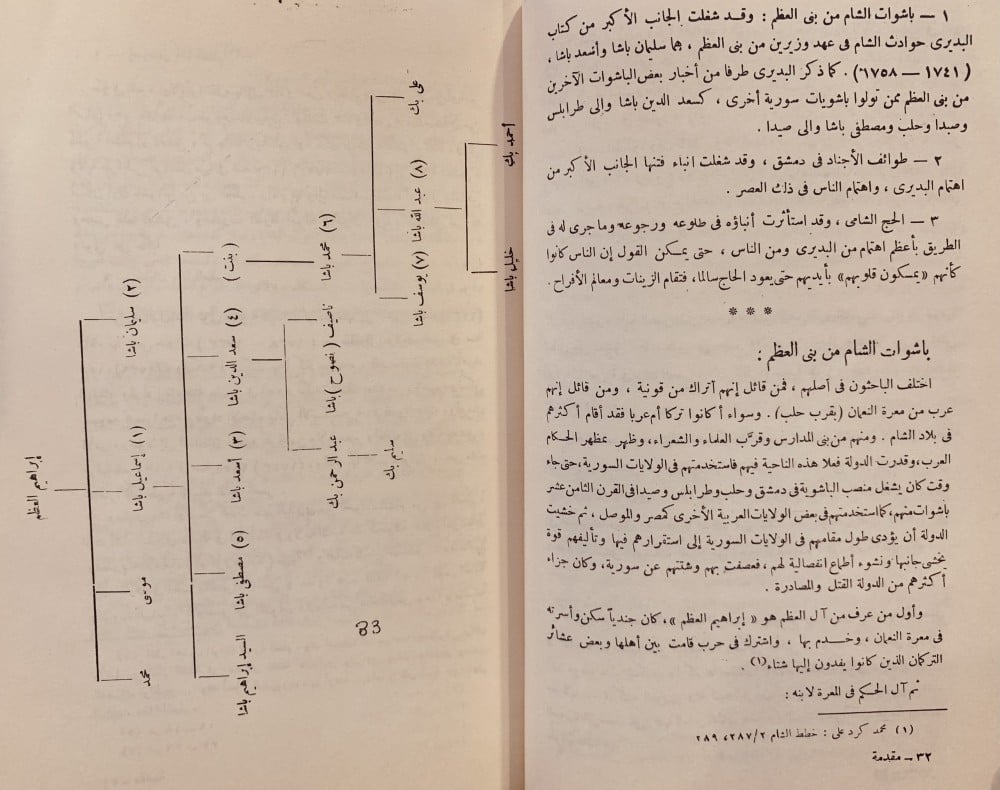 ١ — باشوات الشام من بنى العظم : وقد شغلت الجانب الأكبر من كتاب
البديرى حوادث الشام فى عهد وزيرين من بنى العظم ، هما سليمان باشا وأسعد باشا ،
(١٧٤١ — ٦٧٥٨) . كما ذكر البديرى طرفا من أخبار بعض الباشوات الآخرين
من بنى العظم ممن تولوا باشويات سورية أخرى ، كسعد الدين باشا والى طرابلس
وصيدا وحلب ومصطفى باشا والى صيدا .
٢ — طوائف الأجناد فى دمشق ، وقد شغلت انباء فتنها الجانب الأكبر من
اهتمام البديرى ، واهتمام الناس فى ذلك العصر .
٣ — الحج الشامى ، وقد استأثرت أنباؤه فى طلوعه ورجوعه وما جرى له فى
الطريق بأعظم اهتمام من البديرى ومن الناس ، حتى يمكن القول إن الناس كانوا
كأنهم «يمسكون قلوبهم» بأيديهم حتى يعود الحاج سالما، فتقام الزينات ومعالم الأفراح .
* * *
باشوات الشام من بنى العظم :
اختلف الباحثون فى أصلهم ، فمن قائل إنهم أتراك من قونية ، ومن قائل إنهم
عرب من معرة النعمان (بقرب حلب) . وسواء أكانوا تركا أم عربا فقد أقام أكثرهم
فى بلاد الشام . ومنهم من بنى المدارس وقرّب العلماء والشعراء، وظهر بمظهر الحكام
العرب، وقدرت الدولة فعلا هذه الناحية فيهم فاستخدمتهم فى الولايات السورية، حتى جاء
وقت كان يشغل منصب الباشوية فى دمشق وحلب وطرابلس وصيدا فى القرن الثامن عشر
باشوات منهم، كما استخدمتهم فى بعض الولايات العربية الأخرى كمصر والموصل ، ثم خشيت
الدولة أن يؤدى طول مقامهم فى الولايات السورية إلى استقرارهم فيها وتأليفهم قوة
يخشى جانبها ونشوء أطماع انفصالية لهم ، فعصفت بهم وشتتهم عن سورية، وكان جزاء
أكثرهم من الدولة القتل والمصادرة .
وأول من عرف من آل العظم هو « إبراهيم العظم » ، كان جندياً سكن وأسرته
فى معرة النعمان ، وخدم بها ، واشترك فى حرب قامت بين أهلها وبعض عشائر
التركمان الذين كانوا يفدون إليها شتاء(١) .
ثم آل الحكم فى المعرة لابنه :
(١) محمد كرد على : خطط الشام ٢٨٧/٢، ٢٨٩
٣٢ — مقدمة
إبراهيم العظم
محمد
موسى
(١) إسماعيل باشا
(٢) سليمان باشا
السيد إبراهيم باشا
(٥) مصطفى باشا
(٣) أسعد باشا
(٤) سعد الدين باشا
( بنت )
عبد الرحمن بك
ناصيف ( نصوح ) باشا
(٦) محمد باشا
سليم بك
(٧) يوسف باشا
(٨) عبد الله باشا
على بك
خليل باشا
أحمد بك